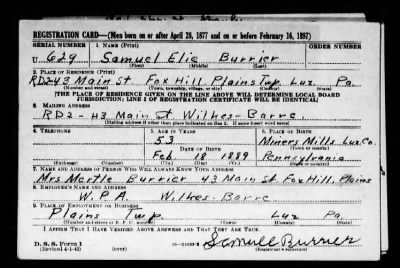 REGISTRATION CARD—(Men born on or after April 28, 1877 and on or before February 16, 1897)
SERIAL NUMBER 1. NAME (Print) ORDER NUMBER
U 629 Samuel Elic Burrier
(First) (Middle) (Last)
2. PLACE OF RESIDENCE (Print)
RD2 43 Main St. Fox Hill, Plains Twp. Luz. Pa.
(Number and street) (Town, township, village, or city) (County) (State)
[THE PLACE OF RESIDENCE GIVEN ON THE LINE ABOVE WILL DETERMINE LOCAL BOARD
JURISDICTION; LINE 2 OF REGISTRATION CERTIFICATE WILL BE IDENTICAL]
3. MAILING ADDRESS
RD2 - 43 Main St. Wilkes-Barre
[Mailing address if other than place indicated on line 2. If same insert word same]
4. TELEPHONE 5. AGE IN YEARS 6. PLACE OF BIRTH
53 Miners Mills Luz. Co.
DATE OF BIRTH (Town or county)
Feb. 18 1889 Pennsylvania
(Exchange) (Number) (Mo.) (Day) (Yr.) (State or country)
7. NAME AND ADDRESS OF PERSON WHO WILL ALWAYS KNOW YOUR ADDRESS
Mrs. Mertle Burrier 43 Main St. Fox Hill, Plains
8. EMPLOYER'S NAME AND ADDRESS
W.P.A. Wilkes-Barre
9. PLACE OF EMPLOYMENT OR BUSINESS
Plains Twp. Luz. Pa.
(Number and street or R. F. D. number) (Town) (County) (State)
I AFFIRM THAT I HAVE VERIFIED ABOVE ANSWERS AND THAT THEY ARE TRUE.
D. S. S. Form 1
(Revised 4-1-42) (over) Samuel Burrier
(Registrant's signature)